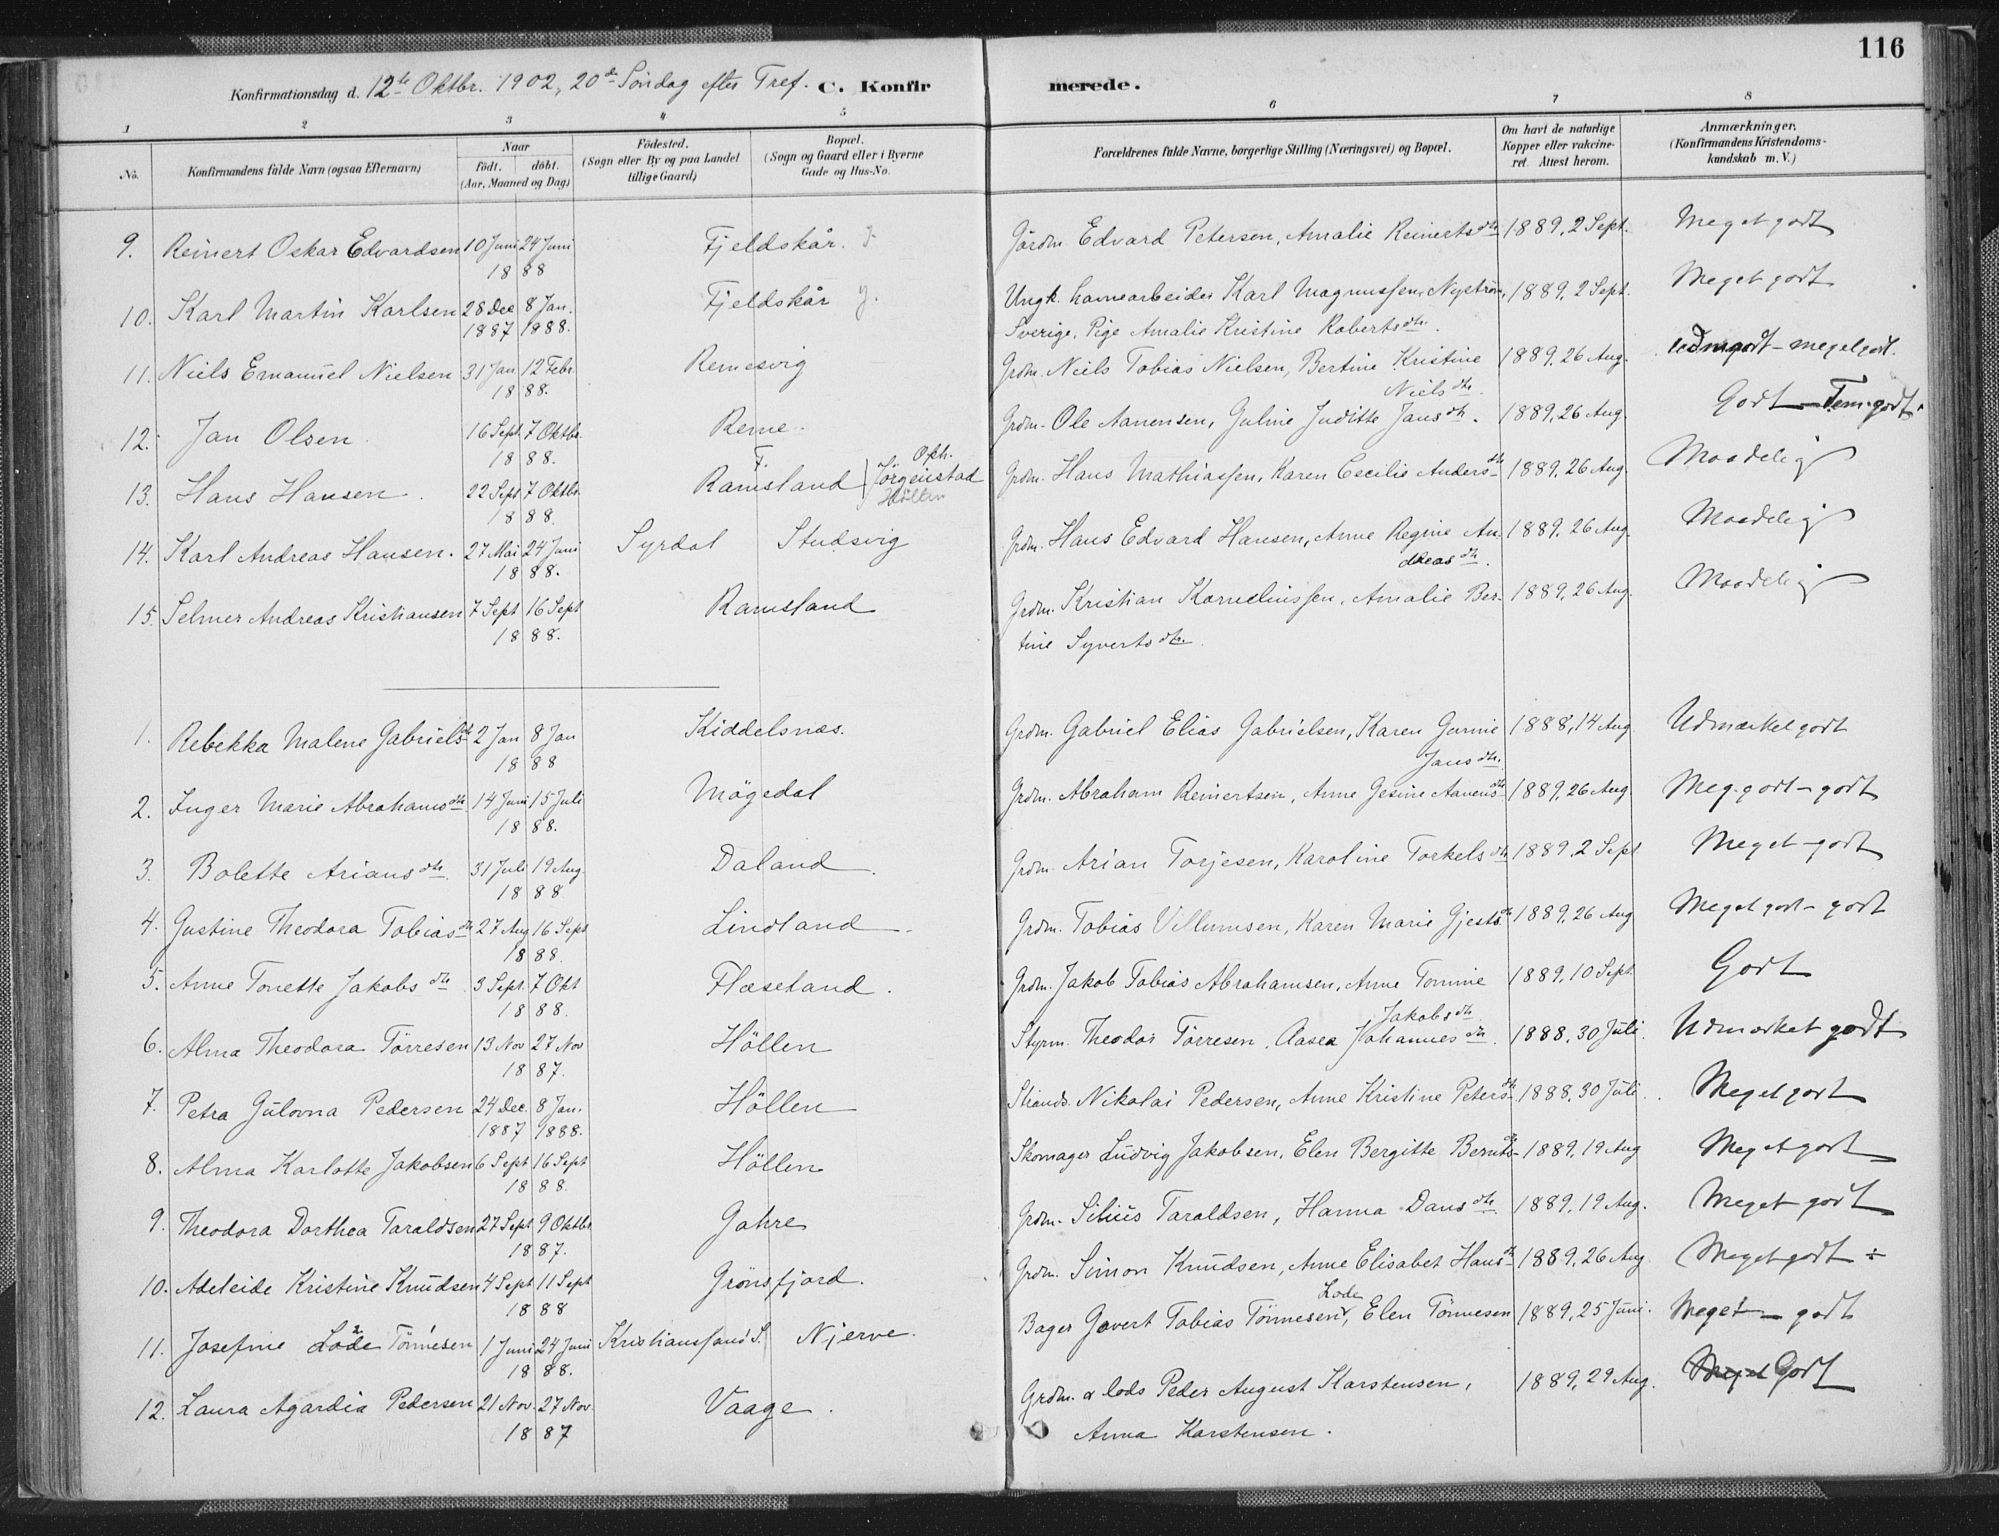 116
Konfirmationsdag d. 12te Oktbr. 1902, 20de Söndag efter Tref. C. Konfirmerede.
1 2 3 4 5 6 7 8
No. Konfirmandens fulde Navn (ogsaa Efternavn) Naar födt. döbt. (Aar, Maaned og Dag) Födested. (Sogn eller By og paa Landet tillige Gaard) Bopæl. (Sogn og Gaard eller i Byerne Gade og Hus-No. Forældrenes fulde Navne, borgerlige Stilling (Næringsvei) og Bopæl. Om havt de naturlige Kopper eller vakcineret. Attest herom. Anmærkninger. (Konfirmandens Kristendomskundskab m. V.)
9. Reinert Oskar Edvardsen 10 Juni 24 Juni Fjeldskår. Gårdm. Edvard Petersen, Amalie Reinertsdtr 1889, 2 Sept. Meget godt
1888
10. Karl Martin Karlsen 28 Dec 8 Jan. Fjeldskår Ungk. havnearbeider Karl Magnussen, Nyström, 1889, 2 Sept. Meget godt
1887 1888. Sverige, Pige Amalie Kristine Robertsdtr.
11. Niels Emanuel Nielsen 31 Jan 12 Febr. Remesvig Grdm. Niels Tobias Nielsen, Bertine Kristine 1889, 26 Aug. Udm godt - meget godt.
1888. Nielsdtr.
12. Jan Olsen 16 Sept 7 Oktbr. Reme. Grdm. Ole Aanensen, Guline Juditte Jansdtr. 1889, 26 Aug. Godt - Tem. godt.
1888.
13. Hans Hansen. 22 Sept 7 Oktbr. F. Ramsland Oph. Jörgenstad Höllen Grdm. Hans Mathiassen, Karen Cecilie Andersdtr 1889, 26 Aug. Maadelig
1888.
14. Karl Andreas Hansen. 27 Mai 24 Juni Syrdal Studsvig Grdm. Hans Edvard Hansen, Anne Regine An- 1889, 26 Aug. Maadelig
1888. dreasdtr.
15. Selmer Andreas Kristiansen 7 Sept 16 Sept Ramsland Grdm. Kristian Kornelinssen, Amalie Ber- 1889, 26 Aug. Maadelig
1888. tine Syvertsdtr.
1. Rebekka Malene Gabrielsdtr 2 Jan 8 Jan Kiddelsnæs. Grdm. Gabriel Elias Gabrielsen, Karen Gunnie 1888, 14 Aug. Udmærket godt
1888 Jansdtr.
2. Inger Marie Abrahamsdtr 14 Juni 15 Juli Mögedal Grdm. Abraham Reinertsen, Anne Gesine Aanensdtr 1889, 26 Aug. Meg. godt - godt
1888.
3. Bolette Ariansdtr 31 Juli 19 Aug. Daland. Grdm. Arian Torjesen, Karoline Torkelsdtr 1889, 2 Sept Meget godt
1888
4. Gustine Theodora Tobiasdtr 27 Aug 16 Sept Lindland Grdm. Tobias Villumsen, Karen Marie Gjestsdtr 1889, 26 Aug Meget godt - godt
1888.
5. Anne Tonette Jakobsdtr 3 Sept. 7 Okt Flæseland. Grdm. Jakob Tobias Abrahamsen, Anne Tomine 1889, 10 Sept. Godt
1888. Jakobsdtr
6. Alma Theodora Törresen 13 Nov 27 Nov Höllen Styrm. Theodor Törresen, Aasea Johannesdtr. 1888, 30 Juli. Udmærket godt
1887.
7. Petra Gulovna Pedersen 24 Dec. 8 Jan. Höllen Strands. Nikolai Pedersen, Anne Kristine Petersdtr 1888, 30 Juli. Meget godt
1887 1888.
8. Alma Karlotte Jakobsen 6 Sept 16 Sept Höllen Skomager Ludvig Jakobsen, Elen Bergitte Berntsdtr 1889, 19 Aug Meget godt
1888.
9. Theodora Dorthea Taraldsen 27 Sept 9 Oktbr. Gahre Grdm. Silius Taraldsen, Hanna Dansdtr 1889, 19 Aug. Meget godt
1887.
10. Adeleide Kristine Knudsen 4 Sept 11 Sept Grönsfjord. Grdm. Simon Knudsen, Anne Elisabet Hansdtr 1889, 26 Aug. Meget godt ÷
1888 Lode
11. Josefine Lode Tönnesen 1 Juni 24 Juni Kristianssand S. Njerve. Bager Govert Tobias Tönnesen, Elen Tönnesen 1889, 25 Juni. Meget - godt
1888.
12. Laura Agardia Pedersen 21 Nov. 27 Nov. Vaage. Grdm. & lods Peder August Karstensen, 1889, 29 Aug. Meget Godt
1887 Anna Karstensen.